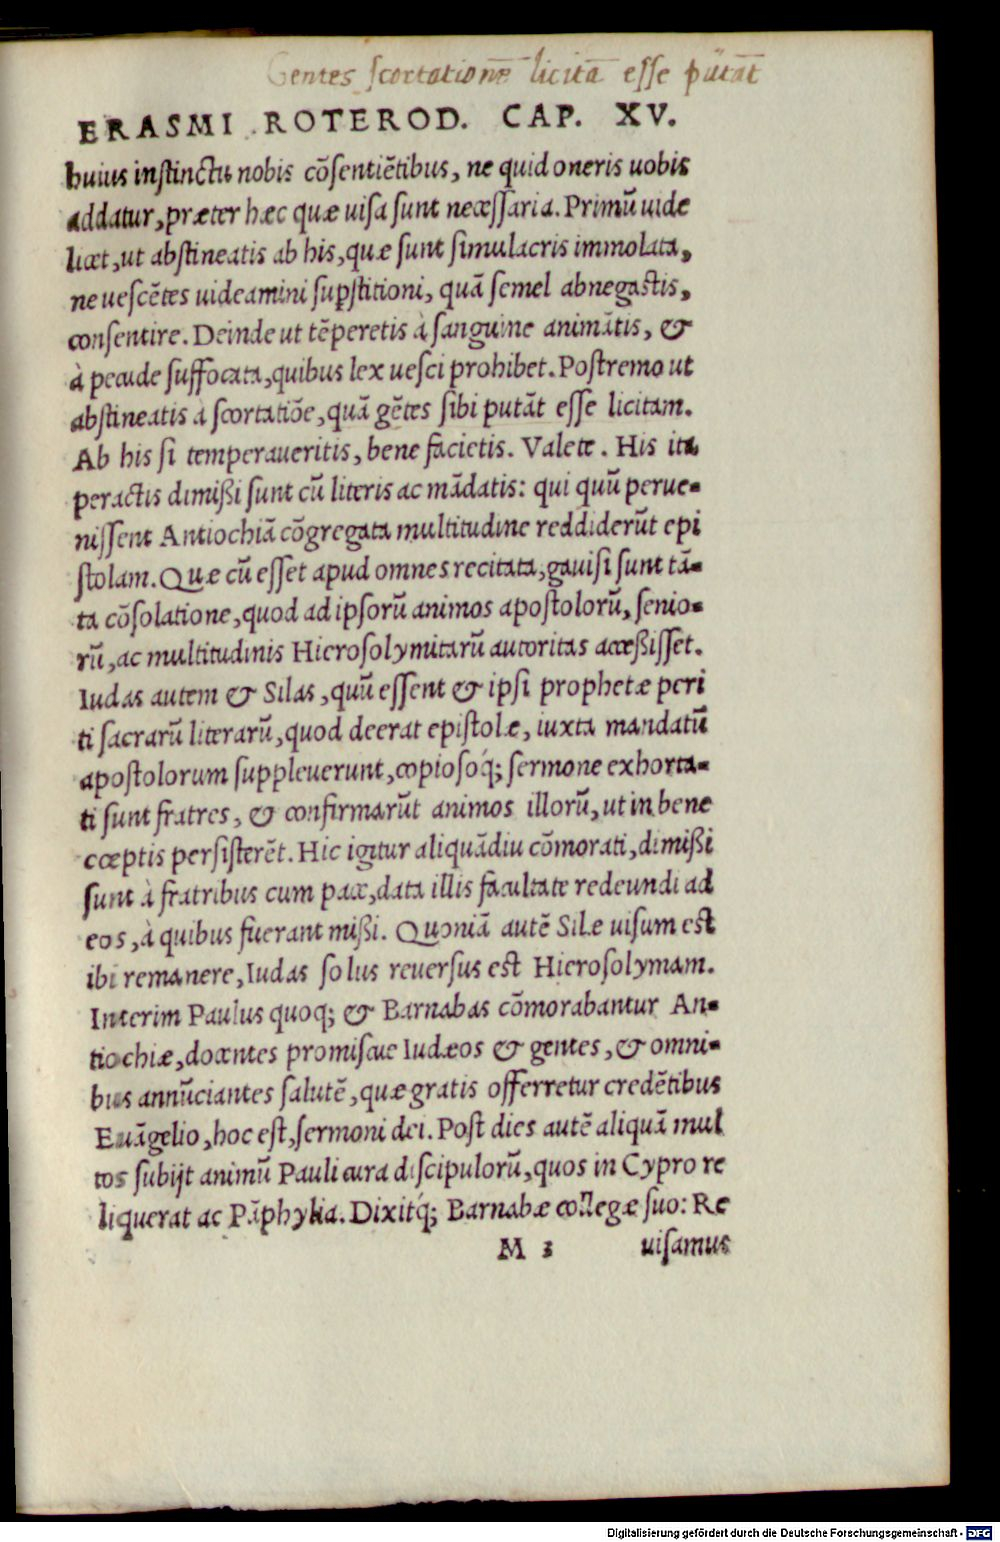 Gentes scortationē licitā esse putāt
ERASMI ROTEROD. CAP. XV.
huius instinctu nobis cōsentiētibus, ne quid oneris uobis
addatur, præter hæc quæ uisa sunt necessaria. Primū uide
licet, ut abstineatis ab his, quæ sunt simulacris immolata,
ne uescētes uideamini sup̱stitioni, quā semel abnegastis,
consentire. Deinde ut tēperetis à sanguine animātis, &
à pecude suffocata, quibus lex uesci prohibet. Postremo ut
abstineatis à scortatiōe, quā gētes sibi putāt esse licitam.
Ab his si temperaueritis, bene facietis. Valete. His ita
peractis dimißi sunt cū literis ac mādatis: qui quū perue-
nissent Antiochiā cōgregata multitudine reddiderūt epi
stolam. Quæ cū esset apud omnes recitata, gauisi sunt tā-
ta cōsolatione, quod ad ipsorū animos apostolorū, senio-
rū, ac multitudinis Hierosolymitarū autoritas acceßisset.
Iudas autem & Silas, quū essent & ipsi prophetæ peri
ti sacrarū literarū, quod deerat epistolæ, iuxta mandatū
apostolorum suppleuerunt, copiosoq́; sermone exhorta-
ti sunt fratres, & confirmarūt animos illorū, ut in bene
cœptis persisterēt. Hic igitur aliquādiu cōmorati, dimißi
sunt à fratribus cum pace, data illis facultate redeundi ad
eos, à quibus fuerant mißi. Quoniā autē Silæ uisum est
ibi remanere, Iudas solus reuersus est Hierosolymam.
Interim Paulus quoq; & Barnabas cōmorabantur An-
tiochiæ, docentes promiscue Iudæos & gentes, & omni-
bus annūciantes salutē, quæ gratis offerretur credētibus
Euāgelio, hoc est, sermoni dei. Post dies autē aliquā mul
tos subijt animū Pauli cura discipulorū, quos in Cypro re
liquerat ac Pāphylia. Dixitq́; Barnabæ collegæ suo: Re
M 3 uisamus
Digitalisierung gefördert durch die Deutsche Forschungsgemeinschaft - DFG